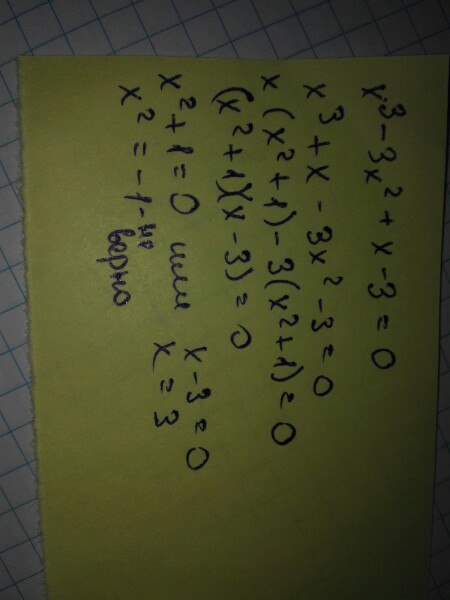 x³ - 3x² + x - 3 = 0
x³ + x - 3x² - 3 = 0
x (x² + 1) - 3(x² + 1) = 0
(x² + 1)(x - 3) = 0
x² + 1 = 0 или x - 3 = 0
x² = -1 - не верно x = 3